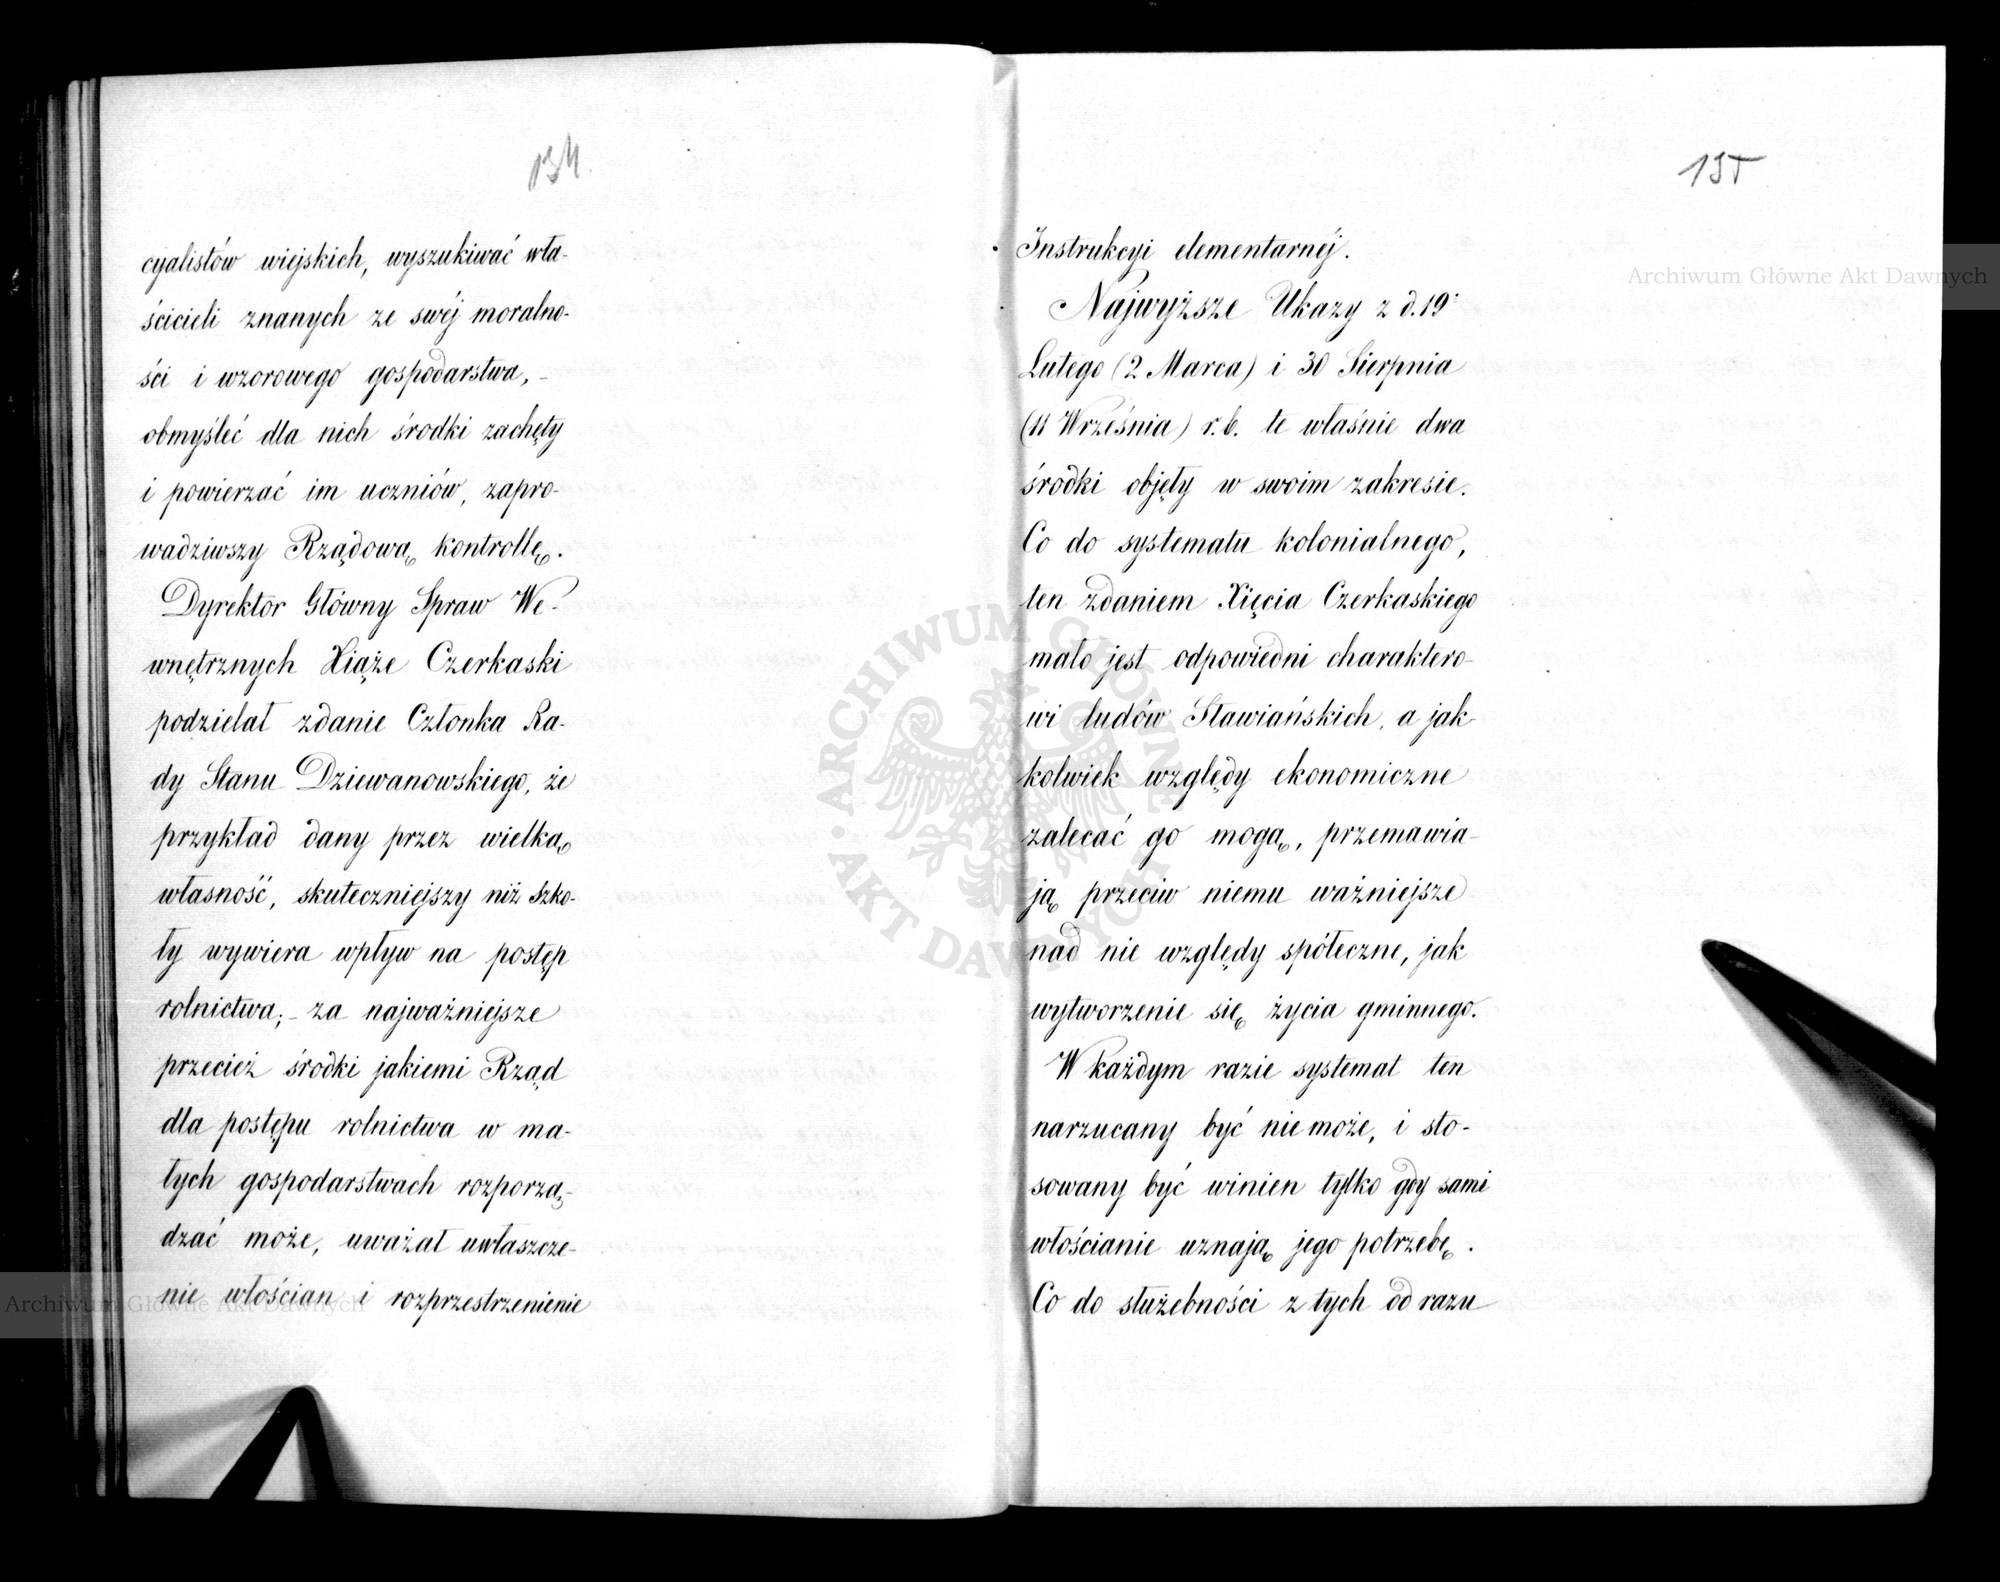 134.
cyalistów wiejskich, wyszukiwać wła-
ścicieli znanych ze swéj moralno-
ści i wzorowego gospodarstwa, -
obmyśleć dla nich środki zachęty
i powierzać im uczniów, zapro-
wadziwszy Rządową kontrollę.
Dyrektor Główny Spraw We-
wnętrznych Xiąże Czerkaski
podzielał zdanie Członka Ra-
dy Stanu Dziewanowskiego, że
przykład dany przez wielką
własność, skuteczniejszy niż Szko-
ły wywiera wpływ na postęp
rolnictwa; - za najważniejsze
przecież środki jakiemi Rząd
dla postępu rolnictwa w ma-
łych gospodarstwach rozporzą-
dzać może, uważał uwłaszcze-
nie włościan i rozprzestrzenienie
135
Instrukcyi elementarnéj.
Najwyższe Ukazy z d. 19
Lutego (2 Marca) i 30 Sierpnia
(11 Września) r. b. te właśnie dwa
środki objęły w swoim zakresie.
Co do systematu kolonialnego,
ten zdaniem Xięcia Czerkaskiego
mało jest odpowiedni charaktero-
wi ludów Sławiańskich, a jak-
kolwiek względy ekonomiczne
zalecać go mogą, przemawia-
ją przeciw niemu ważniejsze
nad nie względy spółeczne, jak
wytworzenie się życia gminnego.
W każdym razie systemat ten
narzucany być nie może, i sto-
sowany być winien tylko gdy sami
włościanie uznają jego potrzebę.
Co do służebności z tych od razu
ARCHIWUM GŁÓWNE AKT DAWNYCH
Archiwum Główne Akt Dawnych
Archiwum Główne Akt Dawnych